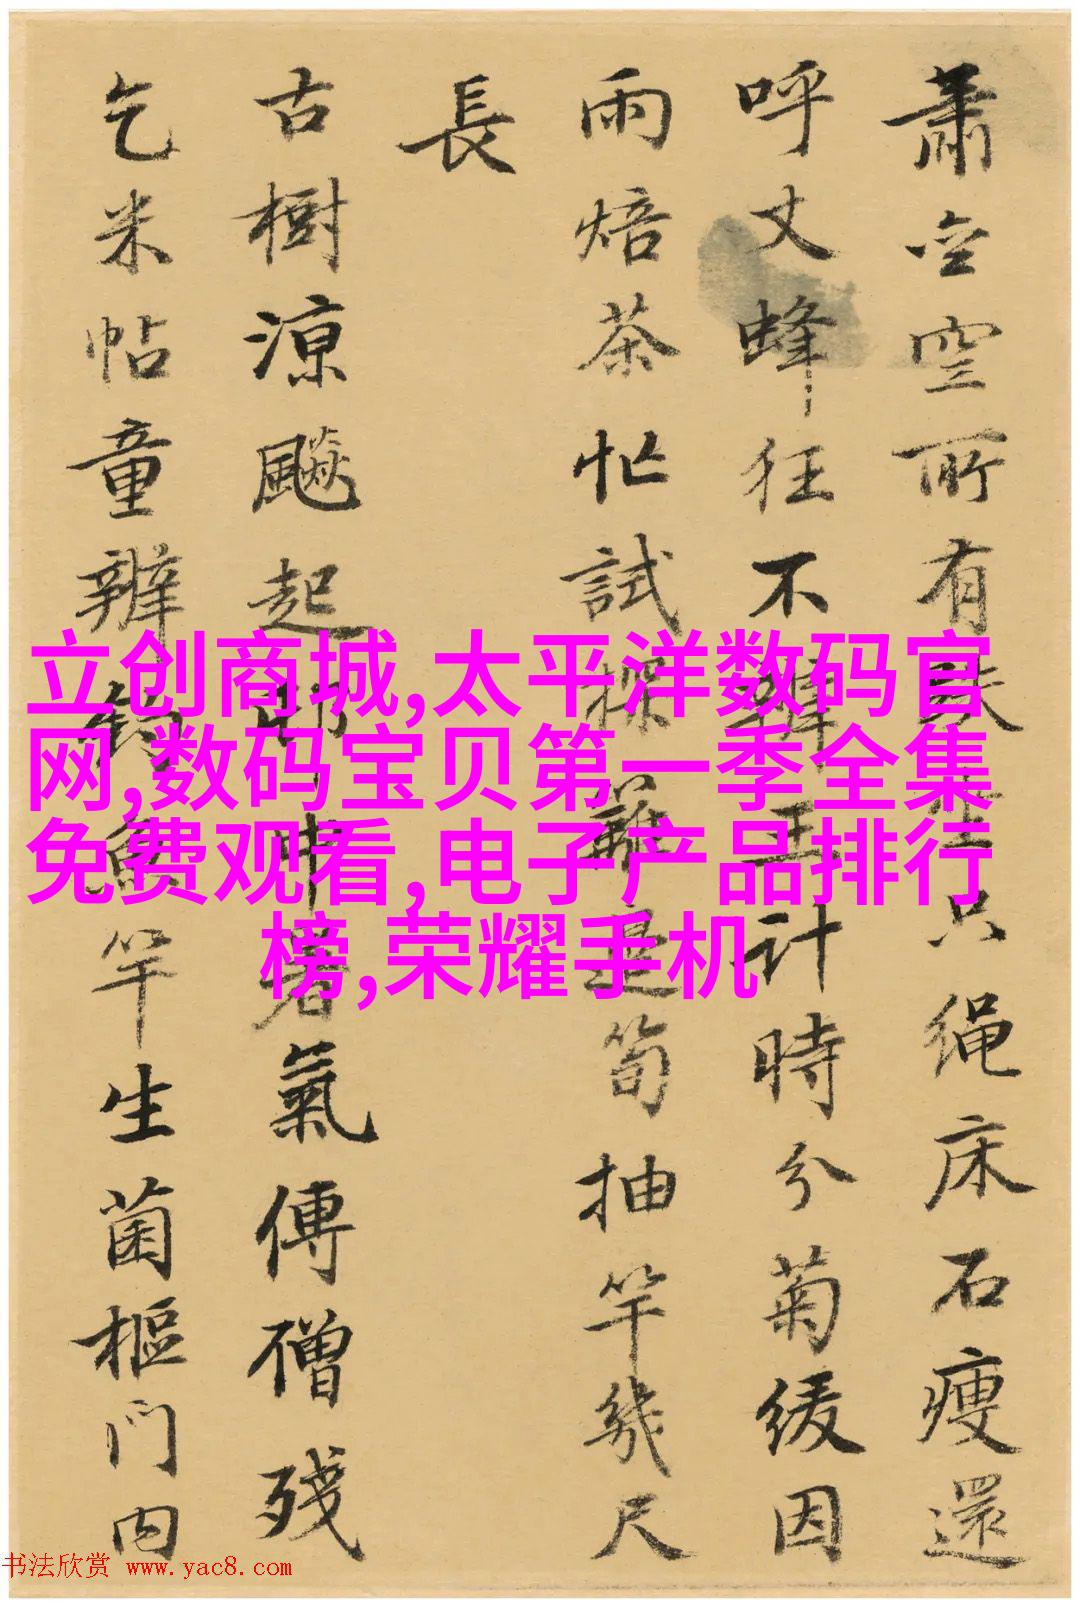 蕭空空所有趺坐只绳床石瘦還
呼丈蜂狂不王計時分菊緩因
雨焙茶忙試探籬是筍抽竿幾尺
長
古樹涼飈起中暑氣傳僧殘
乞米帖童辨釣魚竿生菌樞門内
立创商城,太平洋数码官
网,数码宝贝第一季全集
免费观看,电子产品排行
榜,荣耀手机
书法欣赏 www.yac8.com